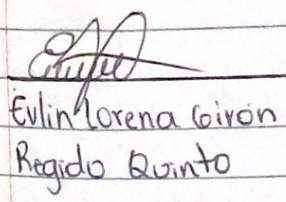 Evlin Lorena Girón
Regido Quinto